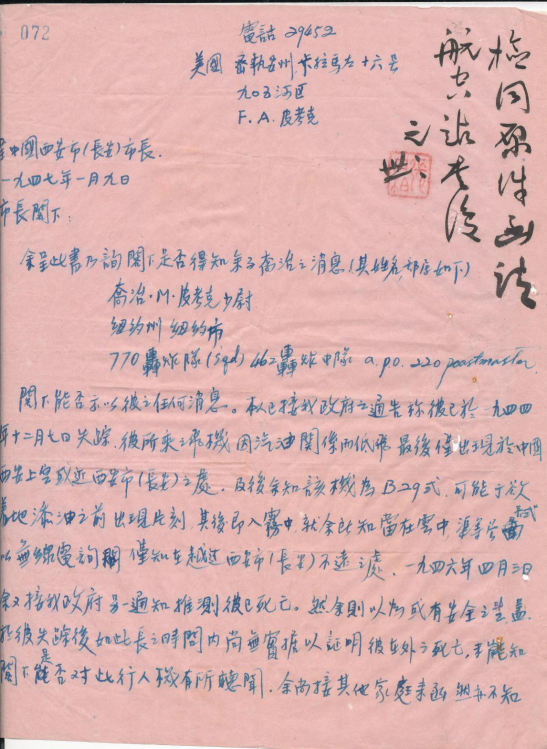 072
電話 29452
美國 密執安州,卡拉馬左十六号
九〇五河区
F. A. 皮考克
檢同原件函請
航空站查復
元
呈中國西安市(長安)市長.
一九四七年一月九日
市長閣下:
余呈此書乃詢閣下是否得知余子喬治之消息(其姓名,部序如下)
喬治·M·皮考克少尉
紐約州 紐約市
770 轟炸隊(sqd) 462轟炸中隊 a.p.o. 220 postmaster
閣下能否示以彼之任何消息。本人已接我政府之通告稱彼已於一九四四
年十二月七日失踪,彼所乘之飛機因汽油關係而低飛 最後僅出現於中國
西安上空或近西安市(長安)之處.及後余知該機為B.29式.可能于欲
基地添油之前出現片刻 其後即入霧中 就余所知當在雲中
以無線電詢 僅知在越过西安市(長安)不遠之處.一九四六年四月三日
余又接我政府另一通知推測彼已死亡。然余則以为或有安全之
於彼失踪後如此長之時間内尚無實据以証明彼在外之死亡,未能知
閣下是否对此行人機有所聽聞.余尚接其他家庭来函 亦不知